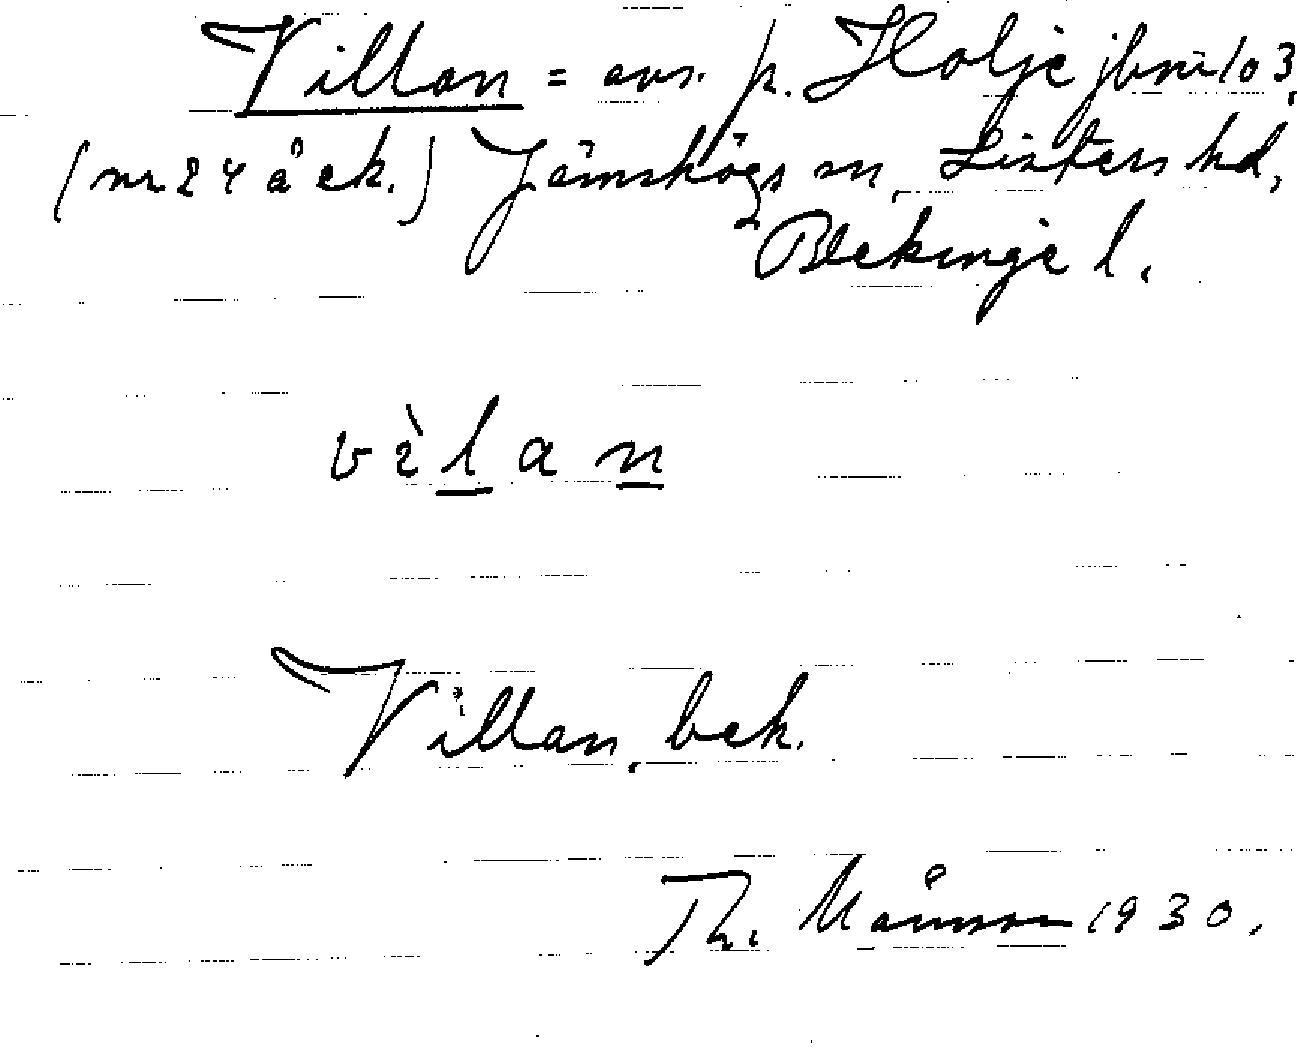 Villan = avs. p. Holje jbnr 103,
(nr 24 å ek.) Jämshögs sn, Listers hd,
Blekinge l.
vìlan
Villan, bek.
Th. Månsson 1930.